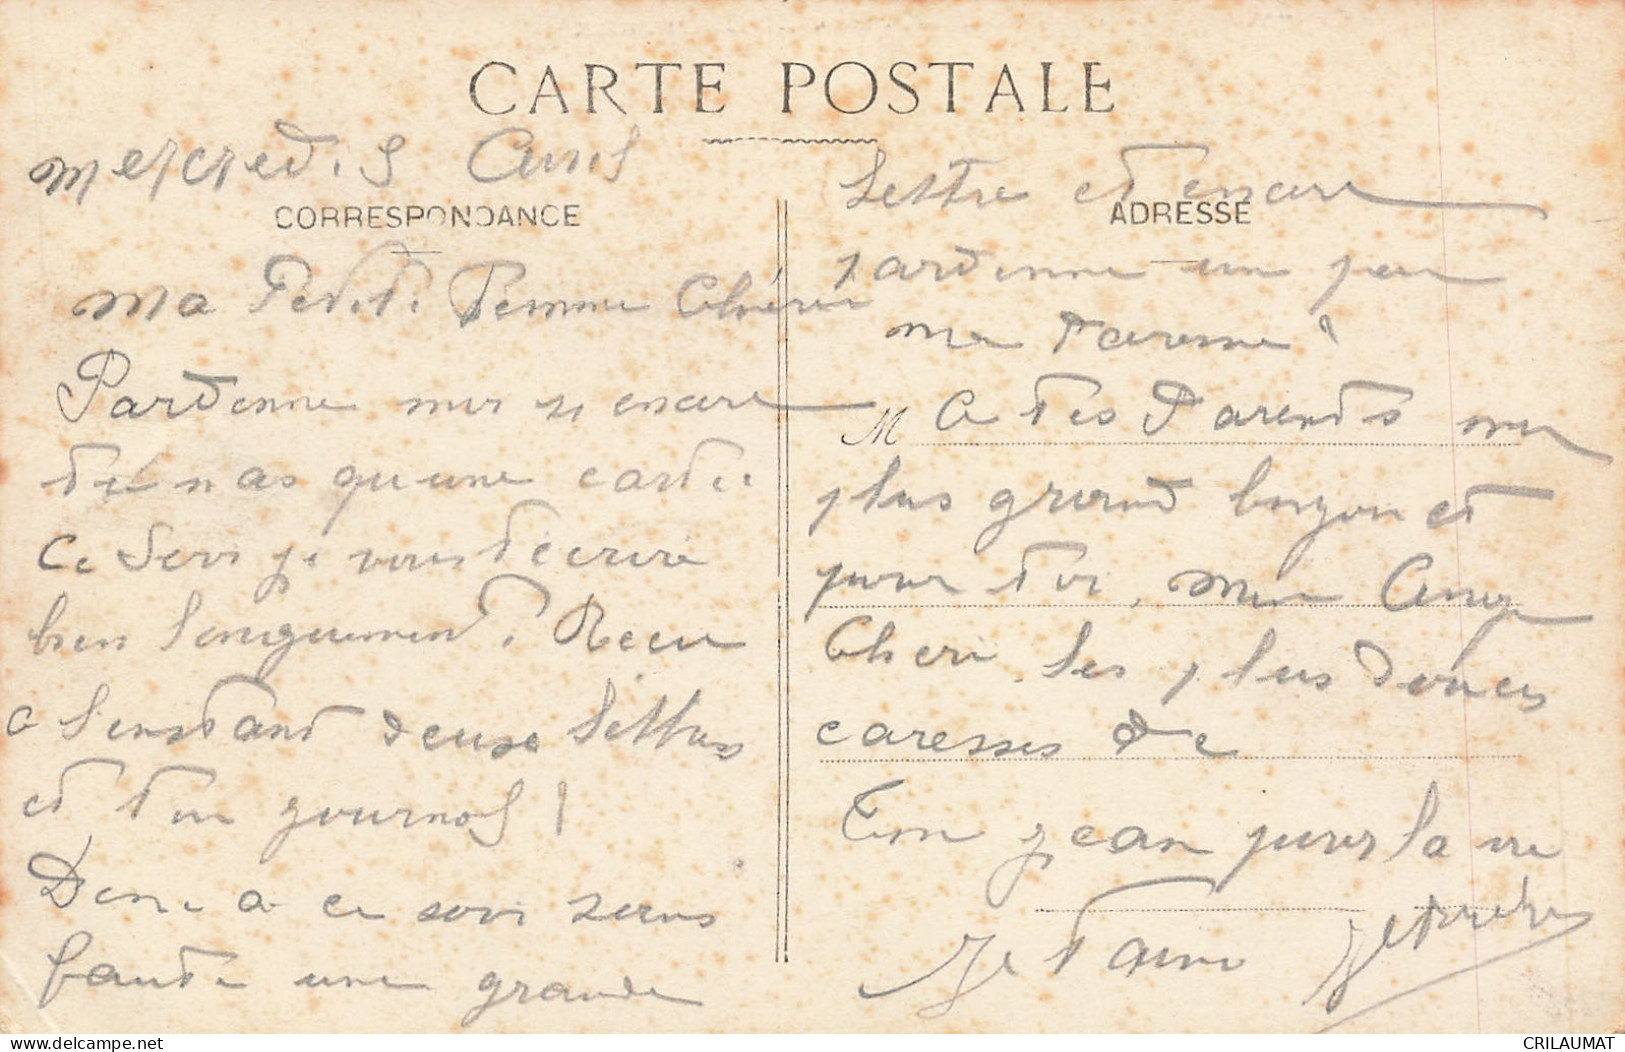 CARTE POSTALE
Mercredi 5 Avril
CORRESPONDANCE
Ma Petite Femme Chérie
Pardonne moi si encore
tu n as qu une carte
Ce Soir je vais t écrire
bien longuement. Recu
a l instant deux lettres
et ton journal !
Donc a ce soir sans
faute une grande
lettre et encore
ADRESSE
pardonne un peu
ma
M A tes Parents mon
plus grand et
pour toi, mon Ange
Cheri les plus douces
caresses de
Ton Jean pour la vie
Je t aime
CRILAUMAT